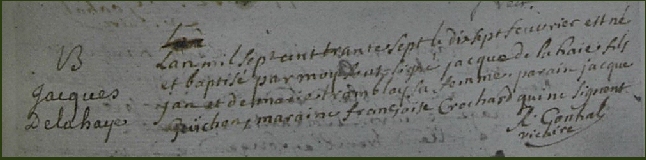 B
jacques
Delahaye
Lan mil sept cint trante sept le dix sept feuvrier est né
et baptisé par moy sousigné jacque de la haie fils
jan et de marie tramblay sa fomme parain jacque
guichen, maraine françoise Crochard qui ne signont
vicaire